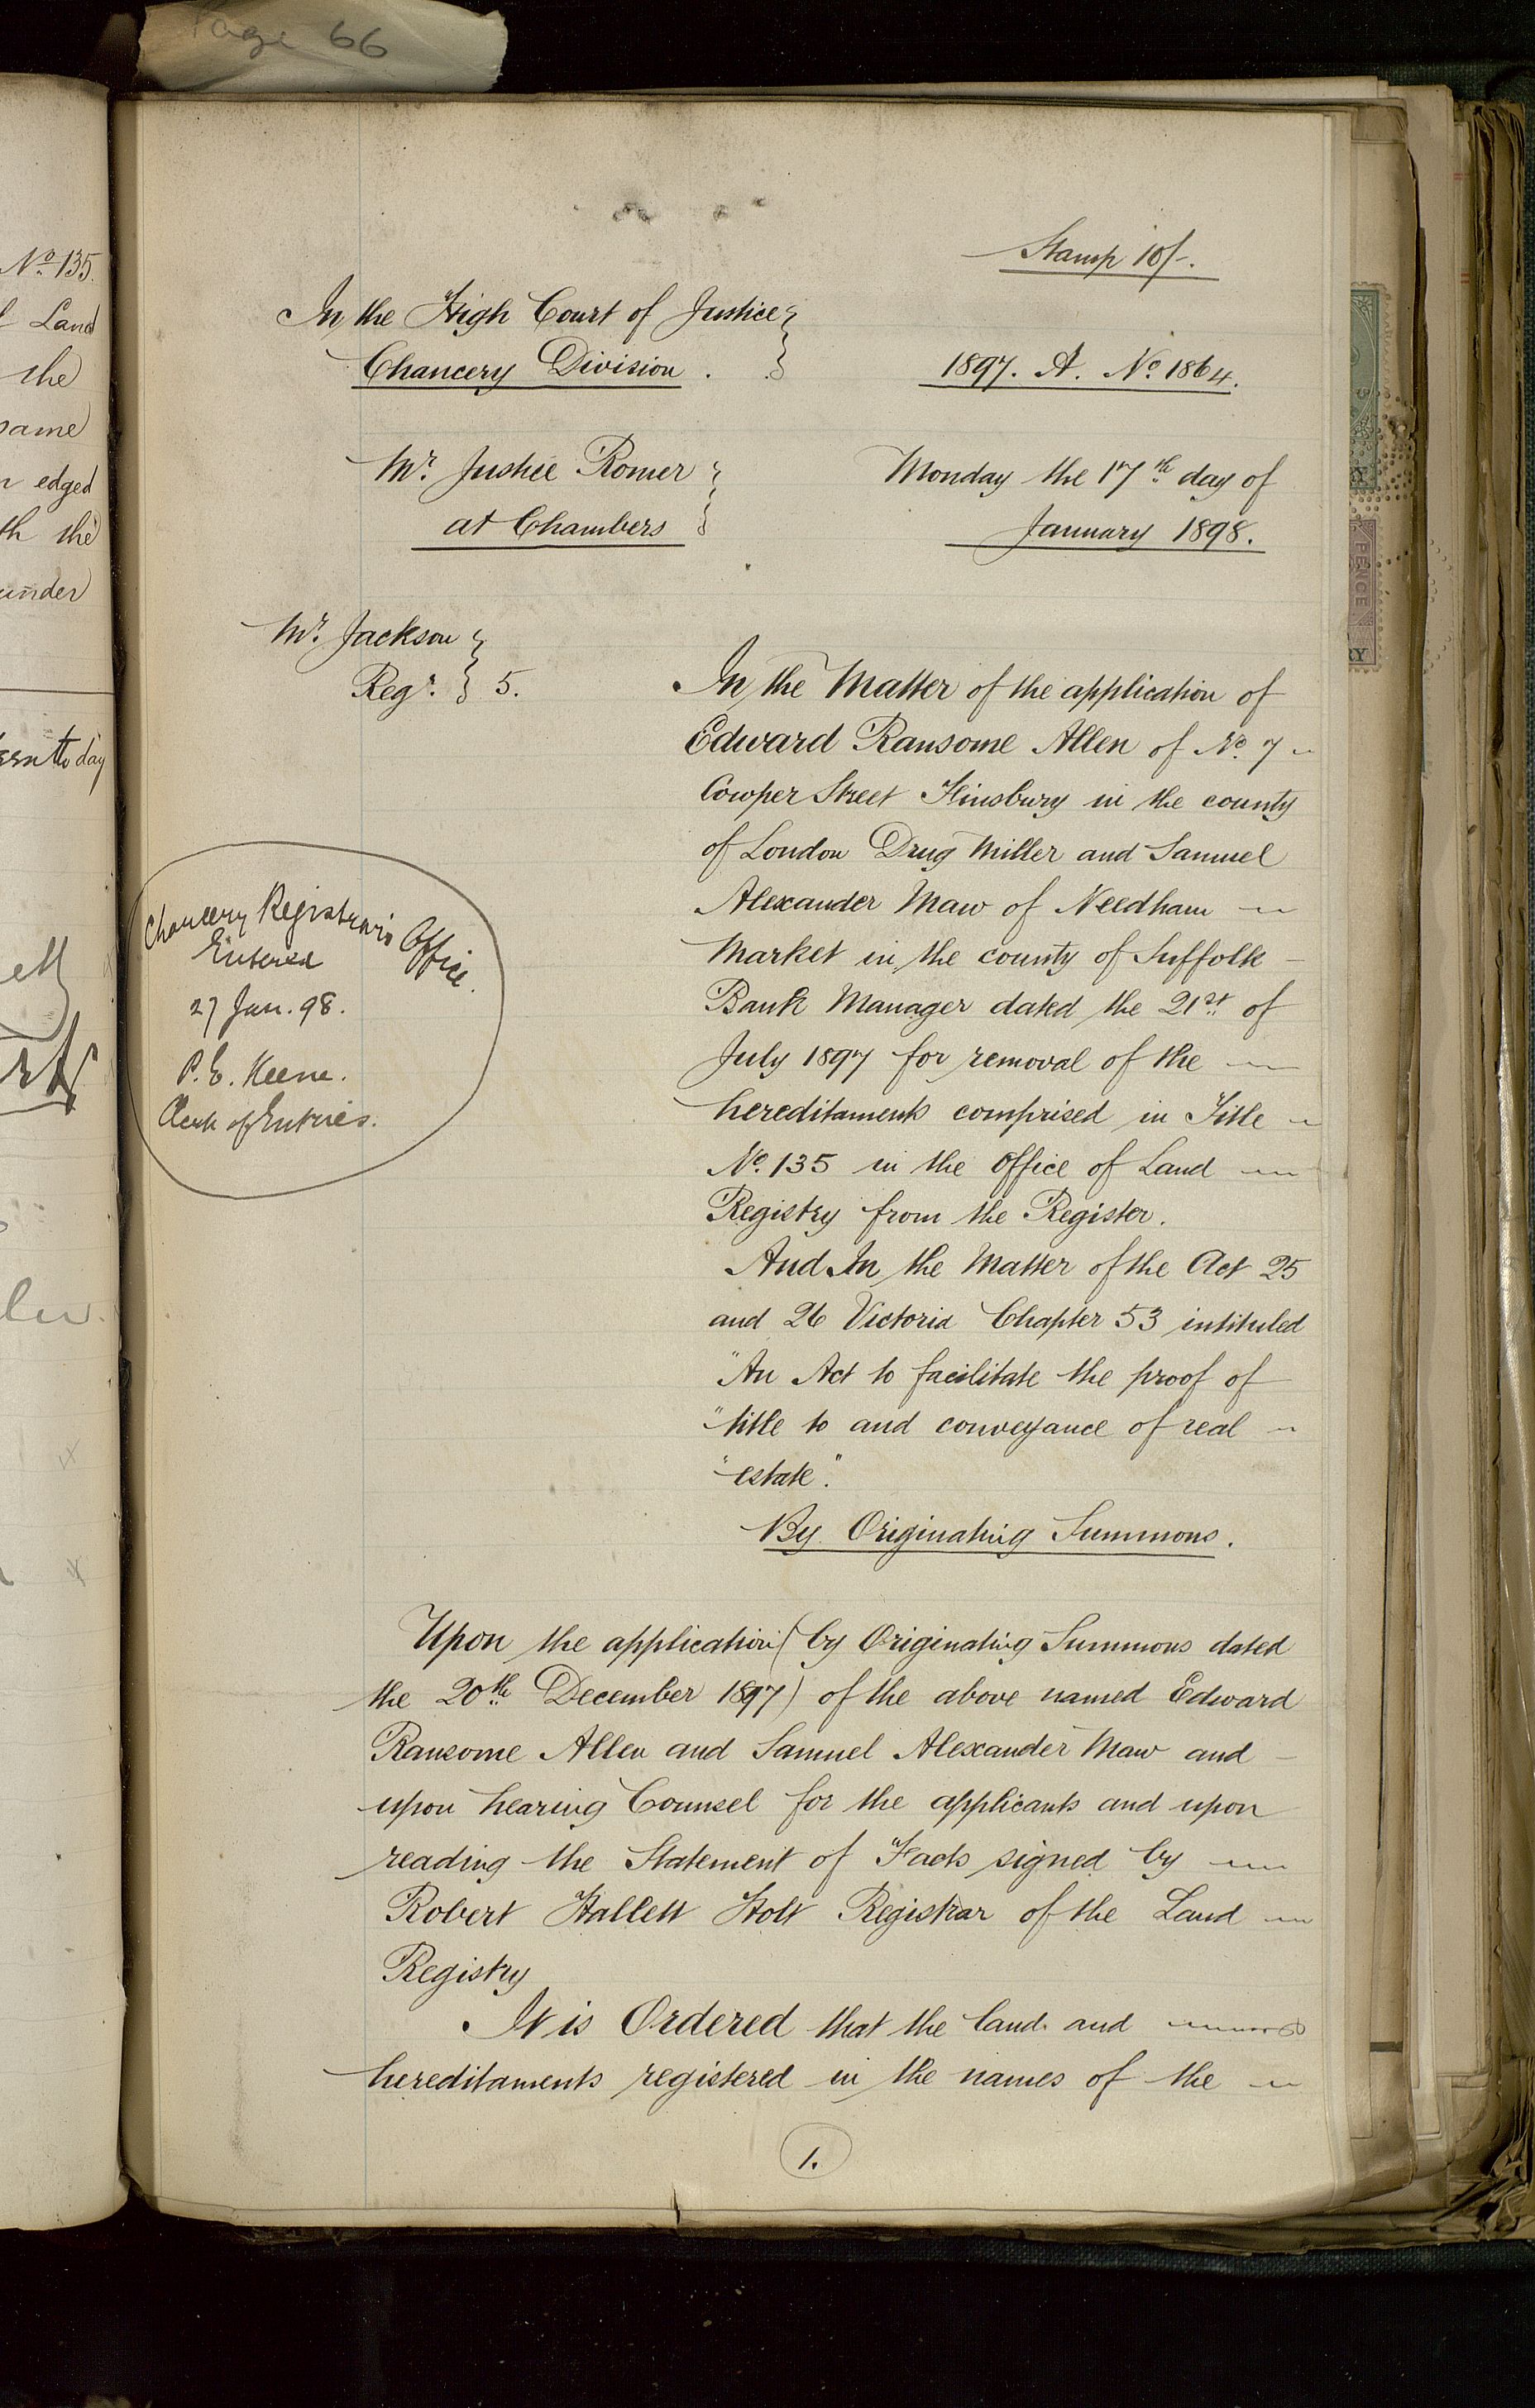 Page 66
Nº 135.
Land
the
same
edged
the
under
day
Stamp 10/-.
In the High Court of Justice
Chancery Division.
1897. A. Nº 1864.
Mr. Justice Romer
at Chambers
Monday the 17th day of
January 1898.
Mr. Jackson
Regr. } 5.
In the Matter of the application of
Edward Ransome Allen of Nº 7
Cowper Street Finsbury in the county
of London Drug Miller and Samuel
Alexander Maw of Needham
Market in the county of Suffolk
Bank Manager dated the 21st of
July 1897 for removal of the
hereditaments comprised in Title
Nº 135 in the Office of Land
Registry from the Register.
And In the Matter of the Act 25
and 26 Victoria Chapter 53 intituled
"An Act to facilitate the proof of
"title to and conveyance of real
"estate".
By Originating Summons.
Chancery Registrar's Office.
Entered
27 Jan. 98.
P. E. Keene.
Clerk of Entries.
Upon the application (by Originating Summons dated
the 20th December 1897) of the above named Edward
Ransome Allen and Samuel Alexander Maw and
upon hearing Counsel for the applicants and upon
reading the Statement of Facts signed by
Robert Hallett Holt Registrar of the Land
Registry
It is Ordered that the land and
hereditaments registered in the names of the
1.